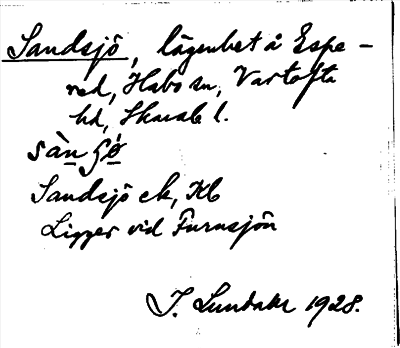 Sandsjö, lägenhet å Espe-
red, Habo sn, Vartofta
hd, Skarab. l.
sàn ʃö̀
Sandsjö ek, Kb
Ligger vid Furusjön
J. Lundahl 1928.